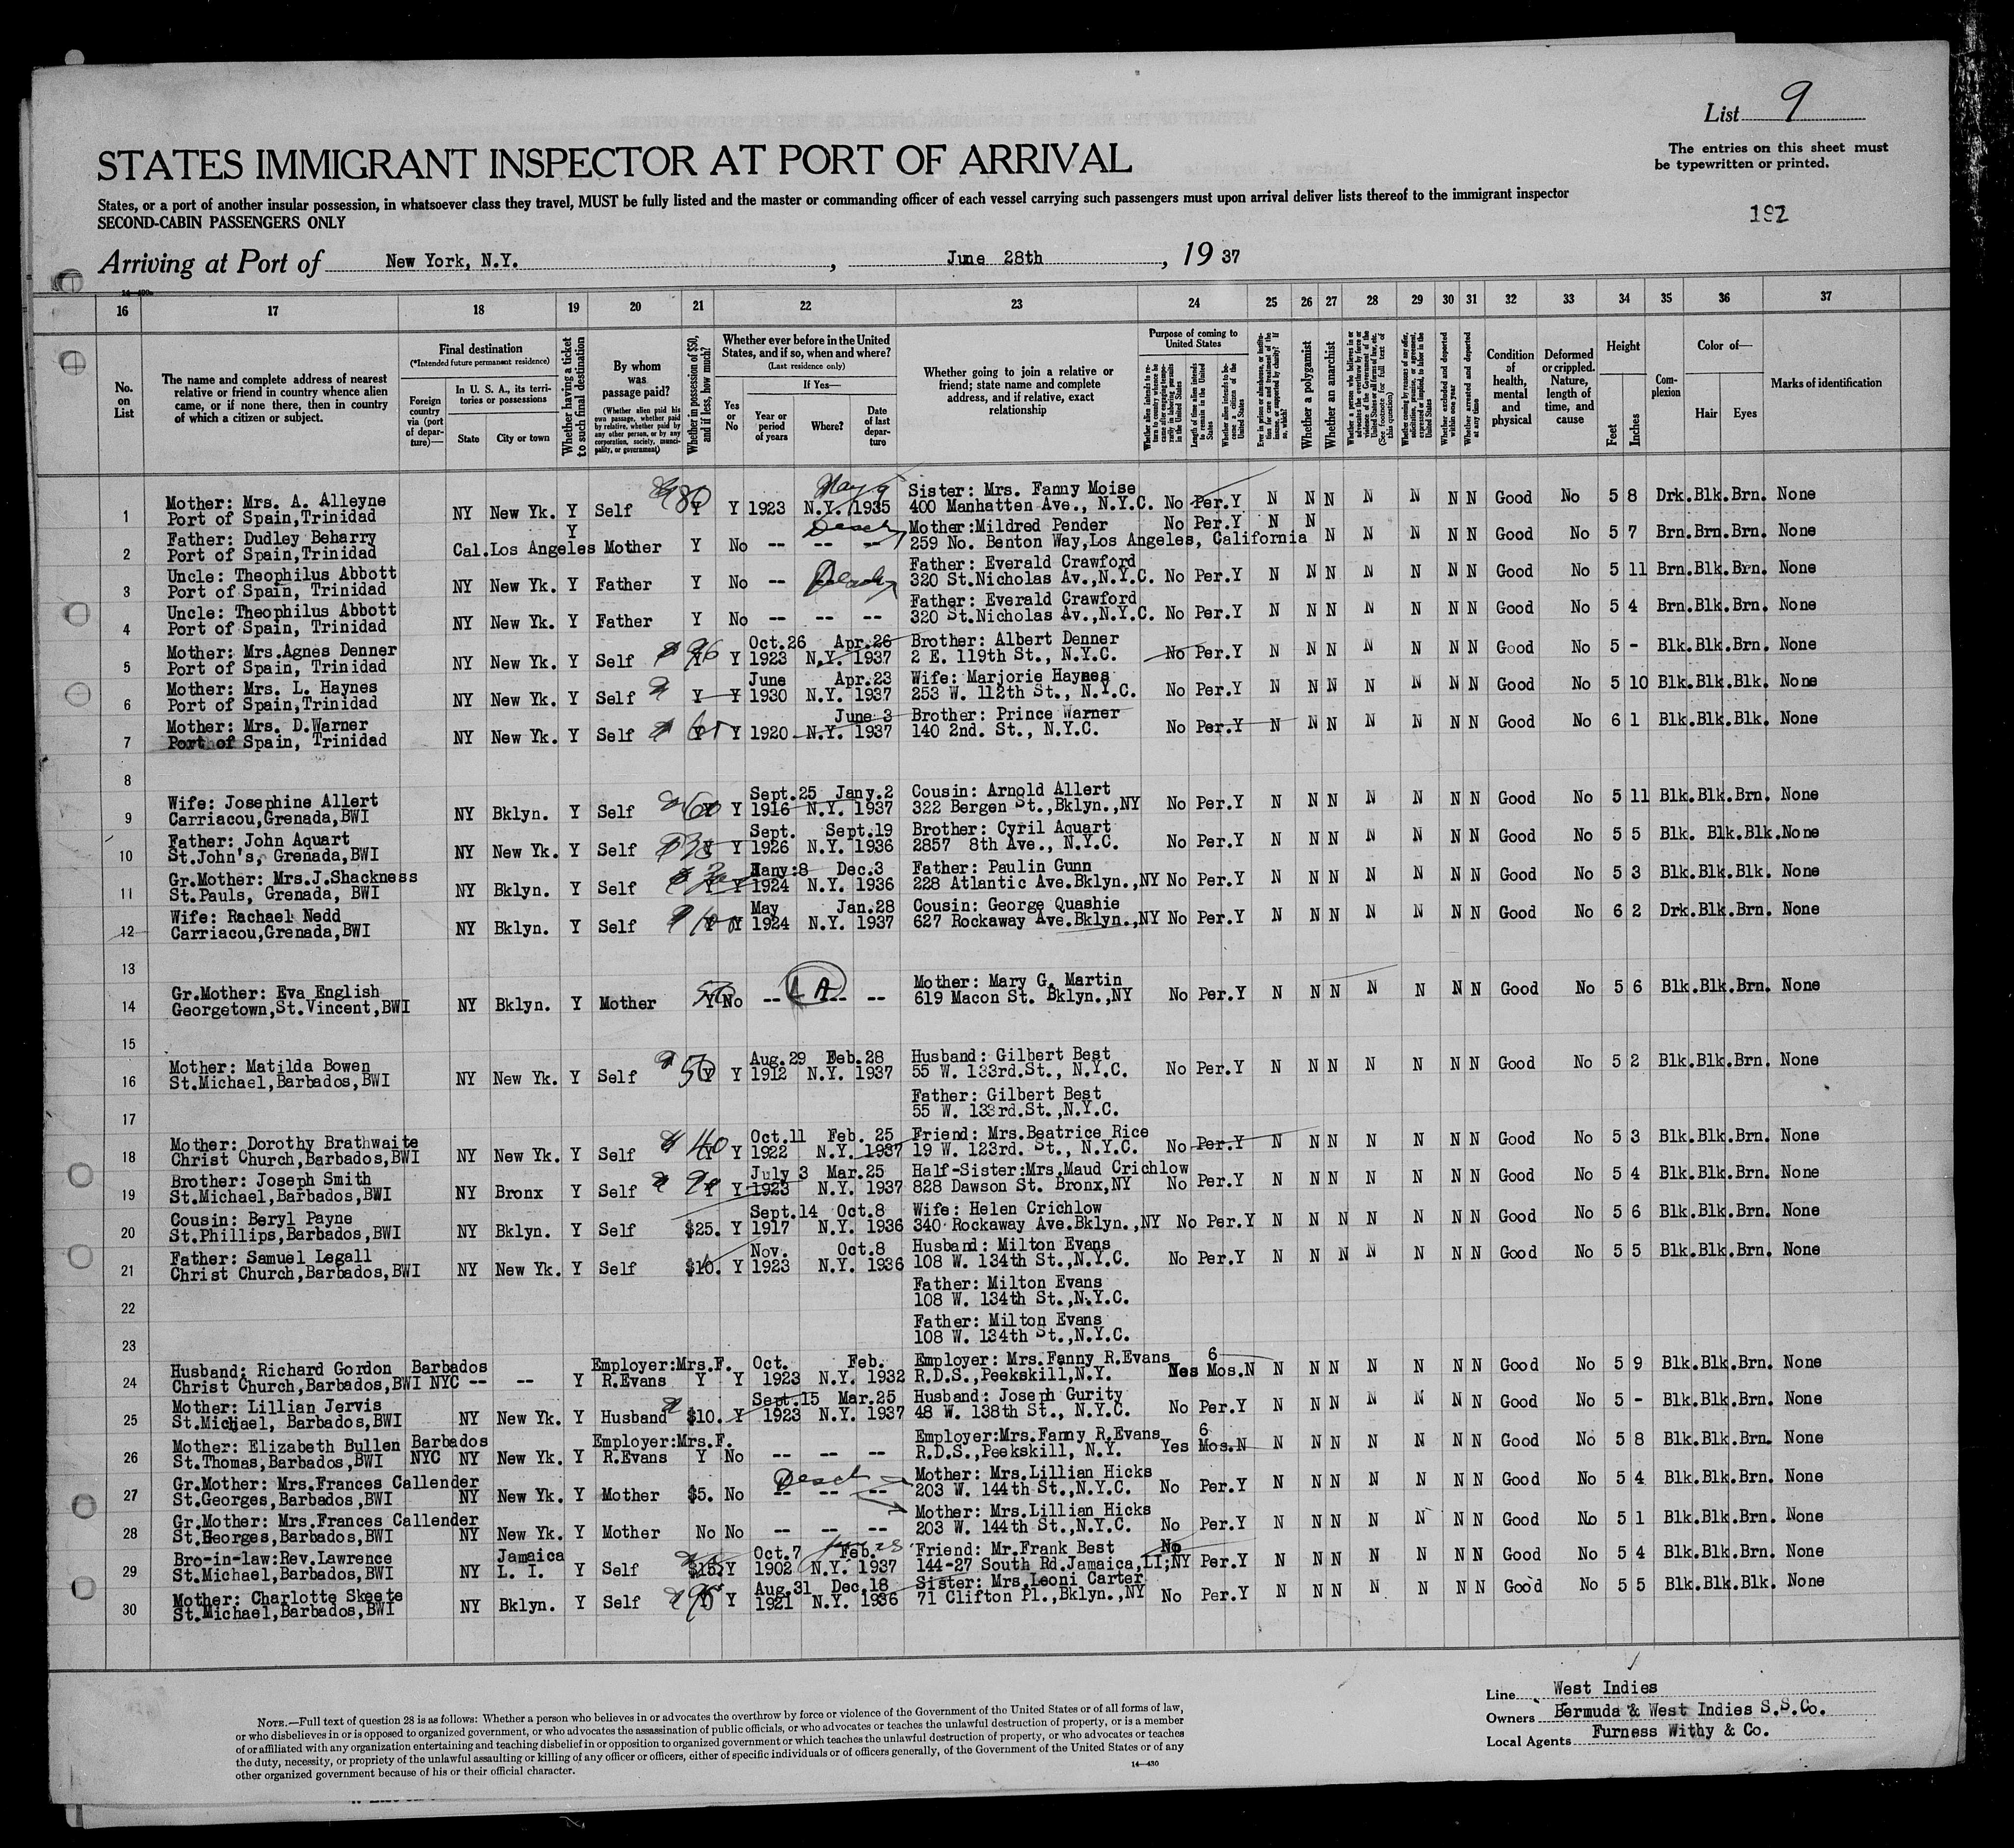 List 9
The entries on this sheet must
be typewritten or printed.
STATES IMMIGRANT INSPECTOR AT PORT OF ARRIVAL
States, or a port of another insular possession, in whatsoever class they travel, MUST be fully listed and the master or commanding officer of each vessel carrying such passengers must upon arrival deliver lists thereof to the immigrant inspector
SECOND-CABIN PASSENGERS ONLY
192
Arriving at Port of New York, N.Y. , June 28th , 19 37
16 17 18 19 20 21 22 23 24 25 26 27 28 29 30 31 32 33 34 35 36 37
No. on List
The name and complete address of nearest relative or friend in country whence alien came, or if none there, then in country of which a citizen or subject.
Final destination
(*Intended future permanent residence)
Foreign country via (port of departure)—
In U. S. A., its territories or possessions
State
City or town
Whether having a ticket to such final destination
By whom was passage paid?
(Whether alien paid his own passage, whether paid by relative, whether paid by any other person, or by any corporation, society, municipality, or government)
Whether in possession of $50, and if less, how much?
Whether ever before in the United States, and if so, when and where?
(Last residence only)
If Yes—
Yes or No
Year or period of years
Where?
Date of last departure
Whether going to join a relative or friend; state name and complete address, and if relative, exact relationship
Purpose of coming to United States
Whether alien intends to return to country whence he came after engaging temporarily in laboring pursuits in the United States
Length of time alien intends to remain in the United States
Whether alien intends to become a citizen of the United States
Ever in prison or almshouse, or institution for care and treatment of the insane, or supported by charity? If so, which?
Whether a polygamist
Whether an anarchist
Whether a person who believes in or advocates the overthrow by force or violence of the Government of the United States or all forms of law, etc. (See footnote for full text of this question)
Whether coming by reason of any offer, solicitation, promise, or agreement, expressed or implied, to labor in the United States
Whether excluded and deported within one year
Whether arrested and deported at any time
Condition of health, mental and physical
Deformed or crippled. Nature, length of time, and cause
Height
Feet
Inches
Complexion
Color of—
Hair
Eyes
Marks of identification
1 Mother: Mrs. A. Alleyne Port of Spain,Trinidad NY New Yk. Y Self 80 Y Y 1923 N.Y. May 9 1935 Sister: Mrs. Fanny Moise 400 Manhatten Ave., N.Y.C. No Per.Y N N N N N N N Good No 5 8 Drk.Blk.Brn. None
2 Father: Dudley Beharry Port of Spain,Trinidad Cal.Los Angeles Y Mother Y No -- -- -- Mother:Mildred Pender 259 No. Benton Way,Los Angeles, California No Per.Y N N N N N N N Good No 5 7 Brn.Brn.Brn. None
3 Uncle: Theophilus Abbott Port of Spain, Trinidad NY New Yk. Y Father Y No -- Father: Everald Crawford 320 St.Nicholas Av.,N.Y.C. No Per.Y N N N N N N N Good No 5 11 Brn.Blk.Brn. None
4 Uncle: Theophilus Abbott Port of Spain, Trinidad NY New Yk. Y Father Y No -- -- -- Father: Everald Crawford 320 St.Nicholas Av.,N.Y.C. No Per.Y N N N N N N N Good No 5 4 Brn.Blk.Brn. None
5 Mother: Mrs.Agnes Denner Port of Spain,Trinidad NY New Yk. Y Self 96 Y Y Oct.26 1923 N.Y. Apr.26 1937 Brother: Albert Denner 2 E. 119th St., N.Y.C. No Per.Y N N N N N N N Good No 5 - Blk.Blk.Brn. None
6 Mother: Mrs. L. Haynes Port of Spain,Trinidad NY New Yk. Y Self Y Y June 1930 N.Y. Apr.23 1937 Wife: Marjorie Haynes 253 W. 112th St., N.Y.C. No Per.Y N N N N N N N Good No 5 10 Blk.Blk.Blk. None
7 Mother: Mrs. D.Warner Port of Spain, Trinidad NY New Yk. Y Self Y Y 1920 N.Y. June 3 1937 Brother: Prince Warner 140 2nd. St., N.Y.C. No Per.Y N N N N N N N Good No 6 1 Blk.Blk.Blk. None
8
9 Wife: Josephine Allert Carriacou,Grenada,BWI NY Bklyn. Y Self 60 Y Sept.25 1916 N.Y. Jany.2 1937 Cousin: Arnold Allert 322 Bergen St.,Bklyn.,NY No Per.Y N N N N N N N Good No 5 11 Blk.Blk.Brn. None
10 Father: John Aquart St.John's, Grenada,BWI NY New Yk. Y Self 35 Y Y Sept. 1926 N.Y. Sept.19 1936 Brother: Cyril Aquart 2857 8th Ave., N.Y.C. No Per.Y N N N N N N N Good No 5 5 Blk. Blk.Blk.None
11 Gr.Mother: Mrs.J.Shackness St.Pauls, Grenada, BWI NY Bklyn. Y Self Y Y Jany:8 1924 N.Y. Dec.3 1936 Father: Paulin Gunn 228 Atlantic Ave.Bklyn.,NY No Per.Y N N N N N N N Good No 5 3 Blk.Blk.Blk. None
12 Wife: Rachael Nedd Carriacou,Grenada,BWI NY Bklyn. Y Self 100 Y Y May 1924 N.Y. Jan.28 1937 Cousin: George Quashie 627 Rockaway Ave.Bklyn.,NY No Per.Y N N N N N N N Good No 6 2 Drk.Blk.Brn. None
13
14 Gr.Mother: Eva English Georgetown,St.Vincent,BWI NY Bklyn. Y Mother 50 Y No -- -- -- Mother: Mary G. Martin 619 Macon St. Bklyn.,NY No Per.Y N N N N N N N Good No 5 6 Blk.Blk.Brn. None
15
16 Mother: Matilda Bowen St.Michael,Barbados,BWI NY New Yk. Y Self 50 Y Y Aug.29 1912 N.Y. Feb.28 1937 Husband: Gilbert Best 55 W. 133rd.St., N.Y.C. No Per.Y N N N N N N N Good No 5 2 Blk.Blk.Brn. None
17 Father: Gilbert Best 55 W. 133rd.St.,N.Y.C.
18 Mother: Dorothy Brathwaite Christ Church,Barbados,BWI NY New Yk. Y Self 40 Y Y Oct.11 1922 N.Y. Feb. 25 1937 Friend: Mrs.Beatrice Rice 19 W. 123rd. St., N.Y.C. No Per.Y N N N N N N N Good No 5 3 Blk.Blk.Brn. None
19 Brother: Joseph Smith St.Michael,Barbados,BWI NY Bronx Y Self Y Y July 3 1923 N.Y. Mar.25 1937 Half-Sister:Mrs.Maud Crichlow 828 Dawson St. Bronx,NY No Per.Y N N N N N N N Good No 5 4 Blk.Blk.Brn. None
20 Cousin: Beryl Payne St.Phillips,Barbados,BWI NY Bklyn. Y Self $25. Y Sept.14 1917 N.Y. Oct.8 1936 Wife: Helen Crichlow 340 Rockaway Ave.Bklyn.,NY No Per.Y N N N N N N N Good No 5 6 Blk.Blk.Brn. None
21 Father: Samuel Legall Christ Church,Barbados,BWI NY New Yk. Y Self $10. Y Nov. 1923 N.Y. Oct.8 1936 Husband: Milton Evans 108 W. 134th St.,N.Y.C. No Per.Y N N N N N N N Good No 5 5 Blk.Blk.Brn. None
22 Father: Milton Evans 108 W. 134th St.,N.Y.C.
23 Father: Milton Evans 108 W. 134th St.,N.Y.C.
24 Husband: Richard Gordon Christ Church,Barbados,BWI Barbados NYC -- -- Y Employer:Mrs.F. R.Evans Y Y Oct. 1923 N.Y. Feb. 1932 Employer: Mrs.Fanny R.Evans R.D.S.,Peekskill,N.Y. Yes 6 Mos.N N N N N N N N Good No 5 9 Blk.Blk.Brn. None
25 Mother: Lillian Jervis St.Michael, Barbados,BWI NY New Yk. Y Husband $10. Y Sept.15 1923 N.Y. Mar.25 1937 Husband: Joseph Gurity 48 W. 138th St., N.Y.C. No Per.Y N N N N N N N Good No 5 - Blk.Blk.Brn. None
26 Mother: Elizabeth Bullen St.Thomas,Barbados,BWI Barbados NYC NY New Yk. Y Employer:Mrs.F. R.Evans Y No -- -- -- Employer:Mrs.Fanny R.Evans R.D.S.,Peekskill, N.Y. Yes 6 Mos.N N N N N N N N Good No 5 8 Blk.Blk.Brn. None
27 Gr.Mother: Mrs.Frances Callender St.Georges,Barbados,BWI NY New Yk. Y Mother $5. No -- -- -- Mother: Mrs.Lillian Hicks 203 W. 144th St.,N.Y.C. No Per.Y N N N N N N N Good No 5 4 Blk.Blk.Brn. None
28 Gr.Mother: Mrs.Frances Callender St.Georges,Barbados,BWI NY New Yk. Y Mother No No -- -- -- Mother: Mrs.Lillian Hicks 203 W. 144th St.,N.Y.C. No Per.Y N N N N N N N Good No 5 1 Blk.Blk.Brn. None
29 Bro-in-law:Rev.Lawrence St.Michael,Barbados,BWI NY Jamaica L. I. Y Self $15. Y Oct.7 1902 N.Y. Feb. 1937 Friend: Mr.Frank Best 144-27 South Rd.Jamaica,LI;NY No Per.Y N N N N N N N Good No 5 4 Blk.Blk.Brn. None
30 Mother: Charlotte Skeete St.Michael,Barbados,BWI NY Bklyn. Y Self Y Y Aug.31 1921 N.Y. Dec.18 1936 Sister: Mrs.Leoni Carter 71 Clifton Pl.,Bklyn.,NY No Per.Y N N N N N N N Good No 5 5 Blk.Blk.Blk. None
Line West Indies
Owners Bermuda & West Indies S.S.Co.
Local Agents Furness Withy & Co.
NOTE.—Full text of question 28 is as follows: Whether a person who believes in or advocates the overthrow by force or violence of the Government of the United States or of all forms of law,
or who disbelieves in or is opposed to organized government, or who advocates the assassination of public officials, or who advocates or teaches the unlawful destruction of property, or is a member
of or affiliated with any organization entertaining and teaching disbelief in or opposition to organized government or which teaches the unlawful destruction of property, or who advocates or teaches
the duty, necessity, or propriety of the unlawful assaulting or killing of any officer or officers, either of specific individuals or of officers generally, of the Government of the United States or of any
other organized government because of his or their official character.
14—430